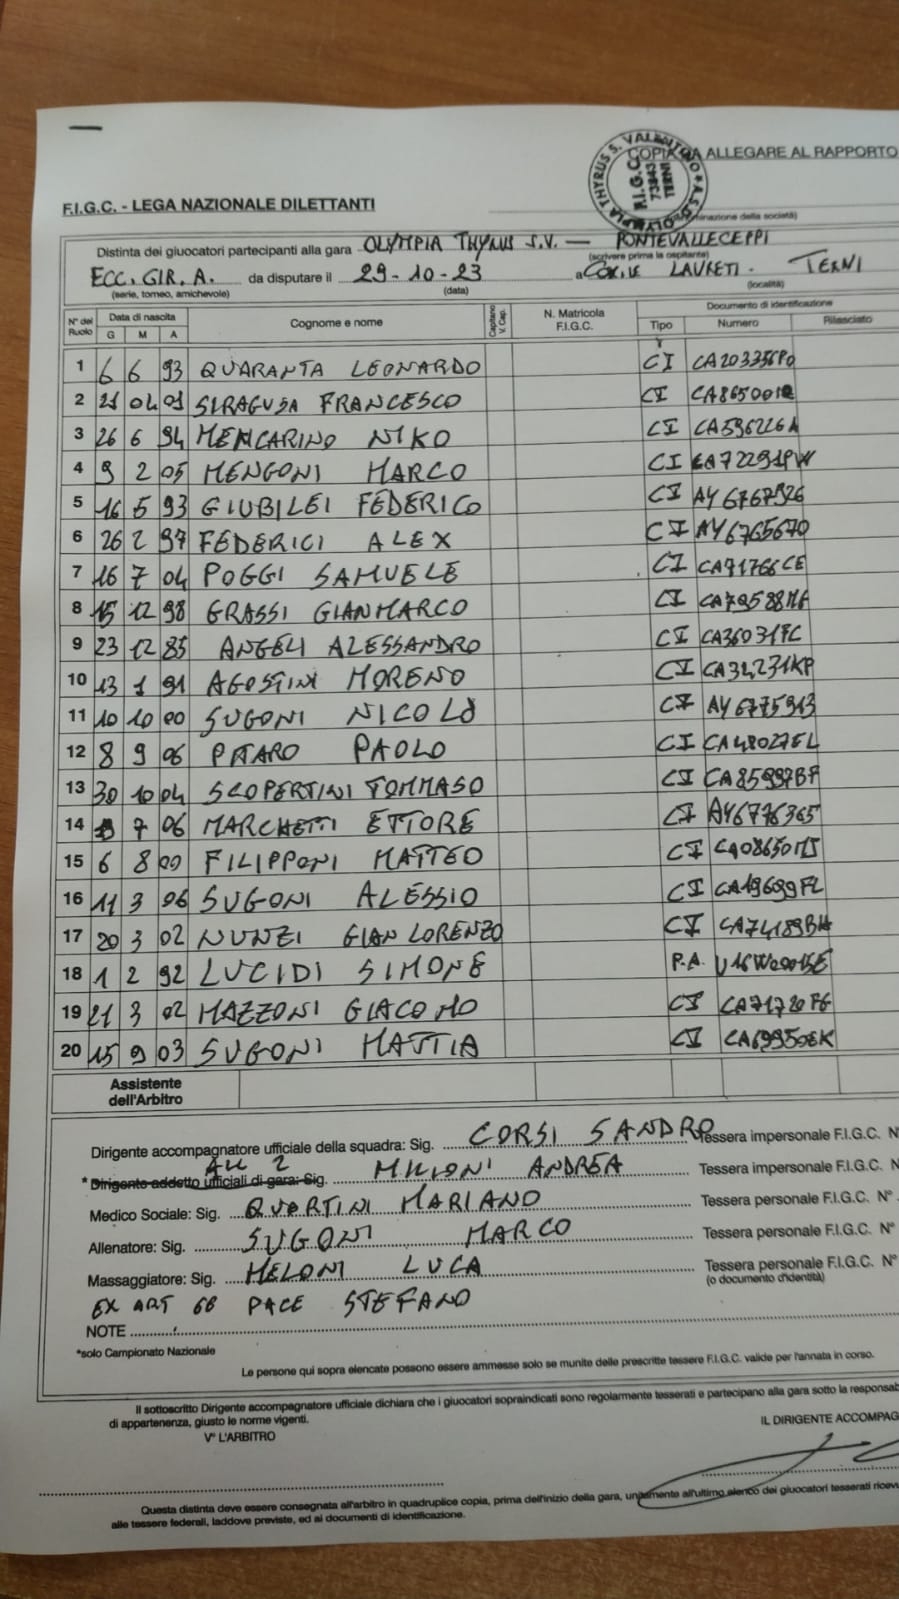 COPIA DA ALLEGARE AL RAPPORTO
A.S.D. OLYMPIA THYRUS S. VALENTINO
F.I.G.C.
73843
TERNI
F.I.G.C. - LEGA NAZIONALE DILETTANTI
(denominazione della società)
Distinta dei giuocatori partecipanti alla gara OLYMPIA THYRUS S.V. — PONTEVALLECEPPI
(scrivere prima la ospitante)
ECC. GIR. A. da disputare il 29-10-23 a LAURETI. TERNI
(serie, torneo, amichevole) (data) (località)
N° del Ruolo Data di nascita G M A Cognome e nome Capitano V. Cap. N. Matricola F.I.G.C. Documento di identificazione Tipo Numero Rilasciato
1 6 6 93 QUARANTA LEONARDO CI CA203356PO
2 21 04 01 SIRAGUSA FRANCESCO CI
3 26 6 94 MENCARINO NIKO CI
4 9 2 05 MENGONI MARCO CI
5 16 5 93 GIUBILEI FEDERICO CI AY6767926
6 26 2 97 FEDERICI ALEX CI AY6765670
7 16 7 04 POGGI SAMUELE CI CA71766CE
8 15 12 98 GRASSI GIANMARCO CI CA79588MA
9 23 12 85 ANGELI ALESSANDRO CI CA36031FC
10 13 1 91 AGOSTINI MORENO CI CA34231KP
11 10 10 00 SUGONI NICOLÒ CI AY6775913
12 8 9 06 PITARO PAOLO CI CA48027EL
13 30 10 04 SCOPERTINI TOMMASO CI CA85997BF
14 7 06 MARCHETTI ETTORE CI AY6776365
15 6 8 00 FILIPPONI MATTEO CI
16 11 3 06 SUGONI ALESSIO CI CA19699FL
17 20 3 02 NUNZI GIAN LORENZO CI CA74189BH
18 1 2 92 LUCIDI SIMONE P.A.
19 21 3 02 MAZZONI GIACOMO CI CA71720FG
20 15 9 03 SUGONI MATTIA CI CA69950EK
Assistente
dell'Arbitro
Dirigente accompagnatore ufficiale della squadra: Sig. CORSI SANDRO Tessera impersonale F.I.G.C. N
ALL 2
* Dirigente addetto ufficiali di gara: Sig. MILIONI ANDREA Tessera impersonale F.I.G.C. N
Medico Sociale: Sig. QUARTINI MARIANO Tessera personale F.I.G.C. N°
Allenatore: Sig. SUGONI MARCO Tessera personale F.I.G.C. N°
Massaggiatore: Sig. MELONI LUCA Tessera personale F.I.G.C. N°
(o documento d'identità)
EX ART 66 PACE STEFANO
NOTE
*solo Campionato Nazionale
Le persone qui sopra elencate possono essere ammesse solo se munite delle prescritte tessere F.I.G.C. valide per l'annata in corso.
Il sottoscritto Dirigente accompagnatore ufficiale dichiara che i giuocatori sopraindicati sono regolarmente tesserati e partecipano alla gara sotto la responsab
di appartenenza, giusto le norme vigenti.
V° L'ARBITRO IL DIRIGENTE ACCOMPAG
Questa distinta deve essere consegnata all'arbitro in quadruplice copia, prima dell'inizio della gara, unitamente all'ultimo elenco dei giuocatori tesserati ricev
alle tessere federali, laddove previste, ed ai documenti di identificazione.